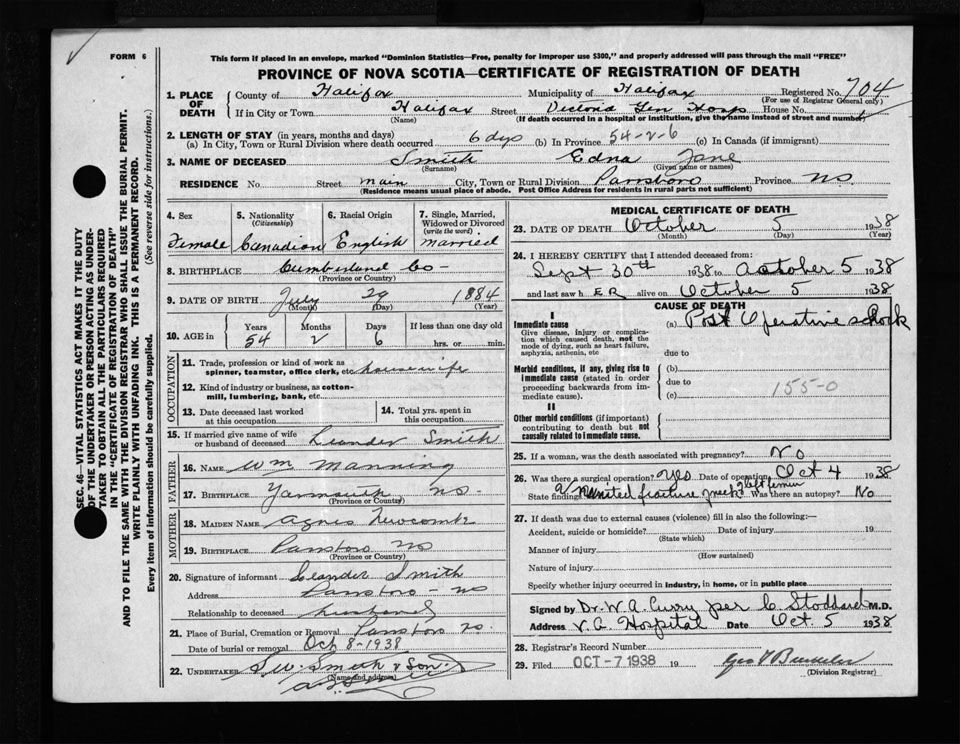 FORM 6
This form if placed in an envelope, marked "Dominion Statistics—Free, penalty for improper use $300," and properly addressed will pass through the mail "FREE"
PROVINCE OF NOVA SCOTIA—CERTIFICATE OF REGISTRATION OF DEATH
SEC. 46—VITAL STATISTICS ACT MAKES IT THE DUTY
OF THE UNDERTAKER OR PERSON ACTING AS UNDER-
TAKER TO OBTAIN ALL THE PARTICULARS REQUIRED
IN THE "CERTIFICATE OF REGISTRATION OF DEATH"
AND TO FILE THE SAME WITH THE DIVISION REGISTRAR WHO SHALL ISSUE THE BURIAL PERMIT.
WRITE PLAINLY WITH UNFADING INK. THIS IS A PERMANENT RECORD.
Every item of information should be carefully supplied. (See reverse side for instructions.)
1. PLACE OF DEATH
County of Halifax Municipality of Halifax Registered No. 704
(For use of Registrar General only)
If in City or Town Halifax Street Victoria Gen Hosp House No.
(Name) (If death occurred in a hospital or institution, give the name instead of street and number)
2. LENGTH OF STAY (in years, months and days)
(a) In City, Town or Rural Division where death occurred 6 dys (b) In Province 54-2-6 (c) In Canada (if immigrant)
3. NAME OF DECEASED Smith Edna Jane
(Surname) (Given name or names)
RESIDENCE No. Street Main City, Town or Rural Division Parrsboro Province NS
(Residence means usual place of abode. Post Office Address for residents in rural parts not sufficient)
4. Sex Female
5. Nationality (Citizenship) Canadian
6. Racial Origin English
7. Single, Married, Widowed or Divorced (write the word) Married
8. BIRTHPLACE Cumberland Co
(Province or Country)
9. DATE OF BIRTH July 29 1884
(Month) (Day) (Year)
10. AGE in Years Months Days If less than one day old
54 2 6 hrs. or min.
OCCUPATION
11. Trade, profession or kind of work as
spinner, teamster, office clerk, etc. housewife
12. Kind of industry or business, as cotton-
mill, lumbering, bank, etc.
13. Date deceased last worked at this occupation
14. Total yrs. spent in this occupation
15. If married give name of wife or husband of deceased Leander Smith
FATHER
16. NAME Wm Manning
17. BIRTHPLACE Yarmouth NS
(Province or Country)
MOTHER
18. MAIDEN NAME Agnes Newcomb
19. BIRTHPLACE Parrsboro NS
(Province or Country)
20. Signature of informant Leander Smith
Address Parrsboro - NS
Relationship to deceased husband
21. Place of Burial, Cremation or Removal Parrsboro NS
Date of burial or removal Oct 8-1938
22. UNDERTAKER S W. Smith & Son
(Name and address)
MEDICAL CERTIFICATE OF DEATH
23. DATE OF DEATH October 5 1938
(Month) (Day) (Year)
24. I HEREBY CERTIFY that I attended deceased from:
Sept 30th 1938 to October 5 1938
and last saw h ER alive on October 5 1938
CAUSE OF DEATH
I
Immediate cause (a) Post Operative schock
Give disease, injury or complica-
tion which caused death, not the
mode of dying, such as heart failure,
asphyxia, asthenia, etc due to
Morbid conditions, if any, giving rise to (b)
immediate cause (stated in order due to
proceeding backwards from im-
mediate cause). (c) 155-0
II
Other morbid conditions (if important)
contributing to death but not
causally related to immediate cause.
25. If a woman, was the death associated with pregnancy? No
26. Was there a surgical operation? Yes Date of operation Oct 4 1938
State findings fracture neck Was there an autopsy? No
27. If death was due to external causes (violence) fill in also the following:—
Accident, suicide or homicide? Date of injury 19
(State which)
Manner of injury
(How sustained)
Nature of injury
Specify whether injury occurred in industry, in home, or in public place
Signed by Dr. W. A. Curry per C. Stoddard M.D.
Address V.G. Hospital Date Oct. 5 1938
28. Registrar's Record Number
29. Filed OCT-7 1938 19
(Division Registrar)